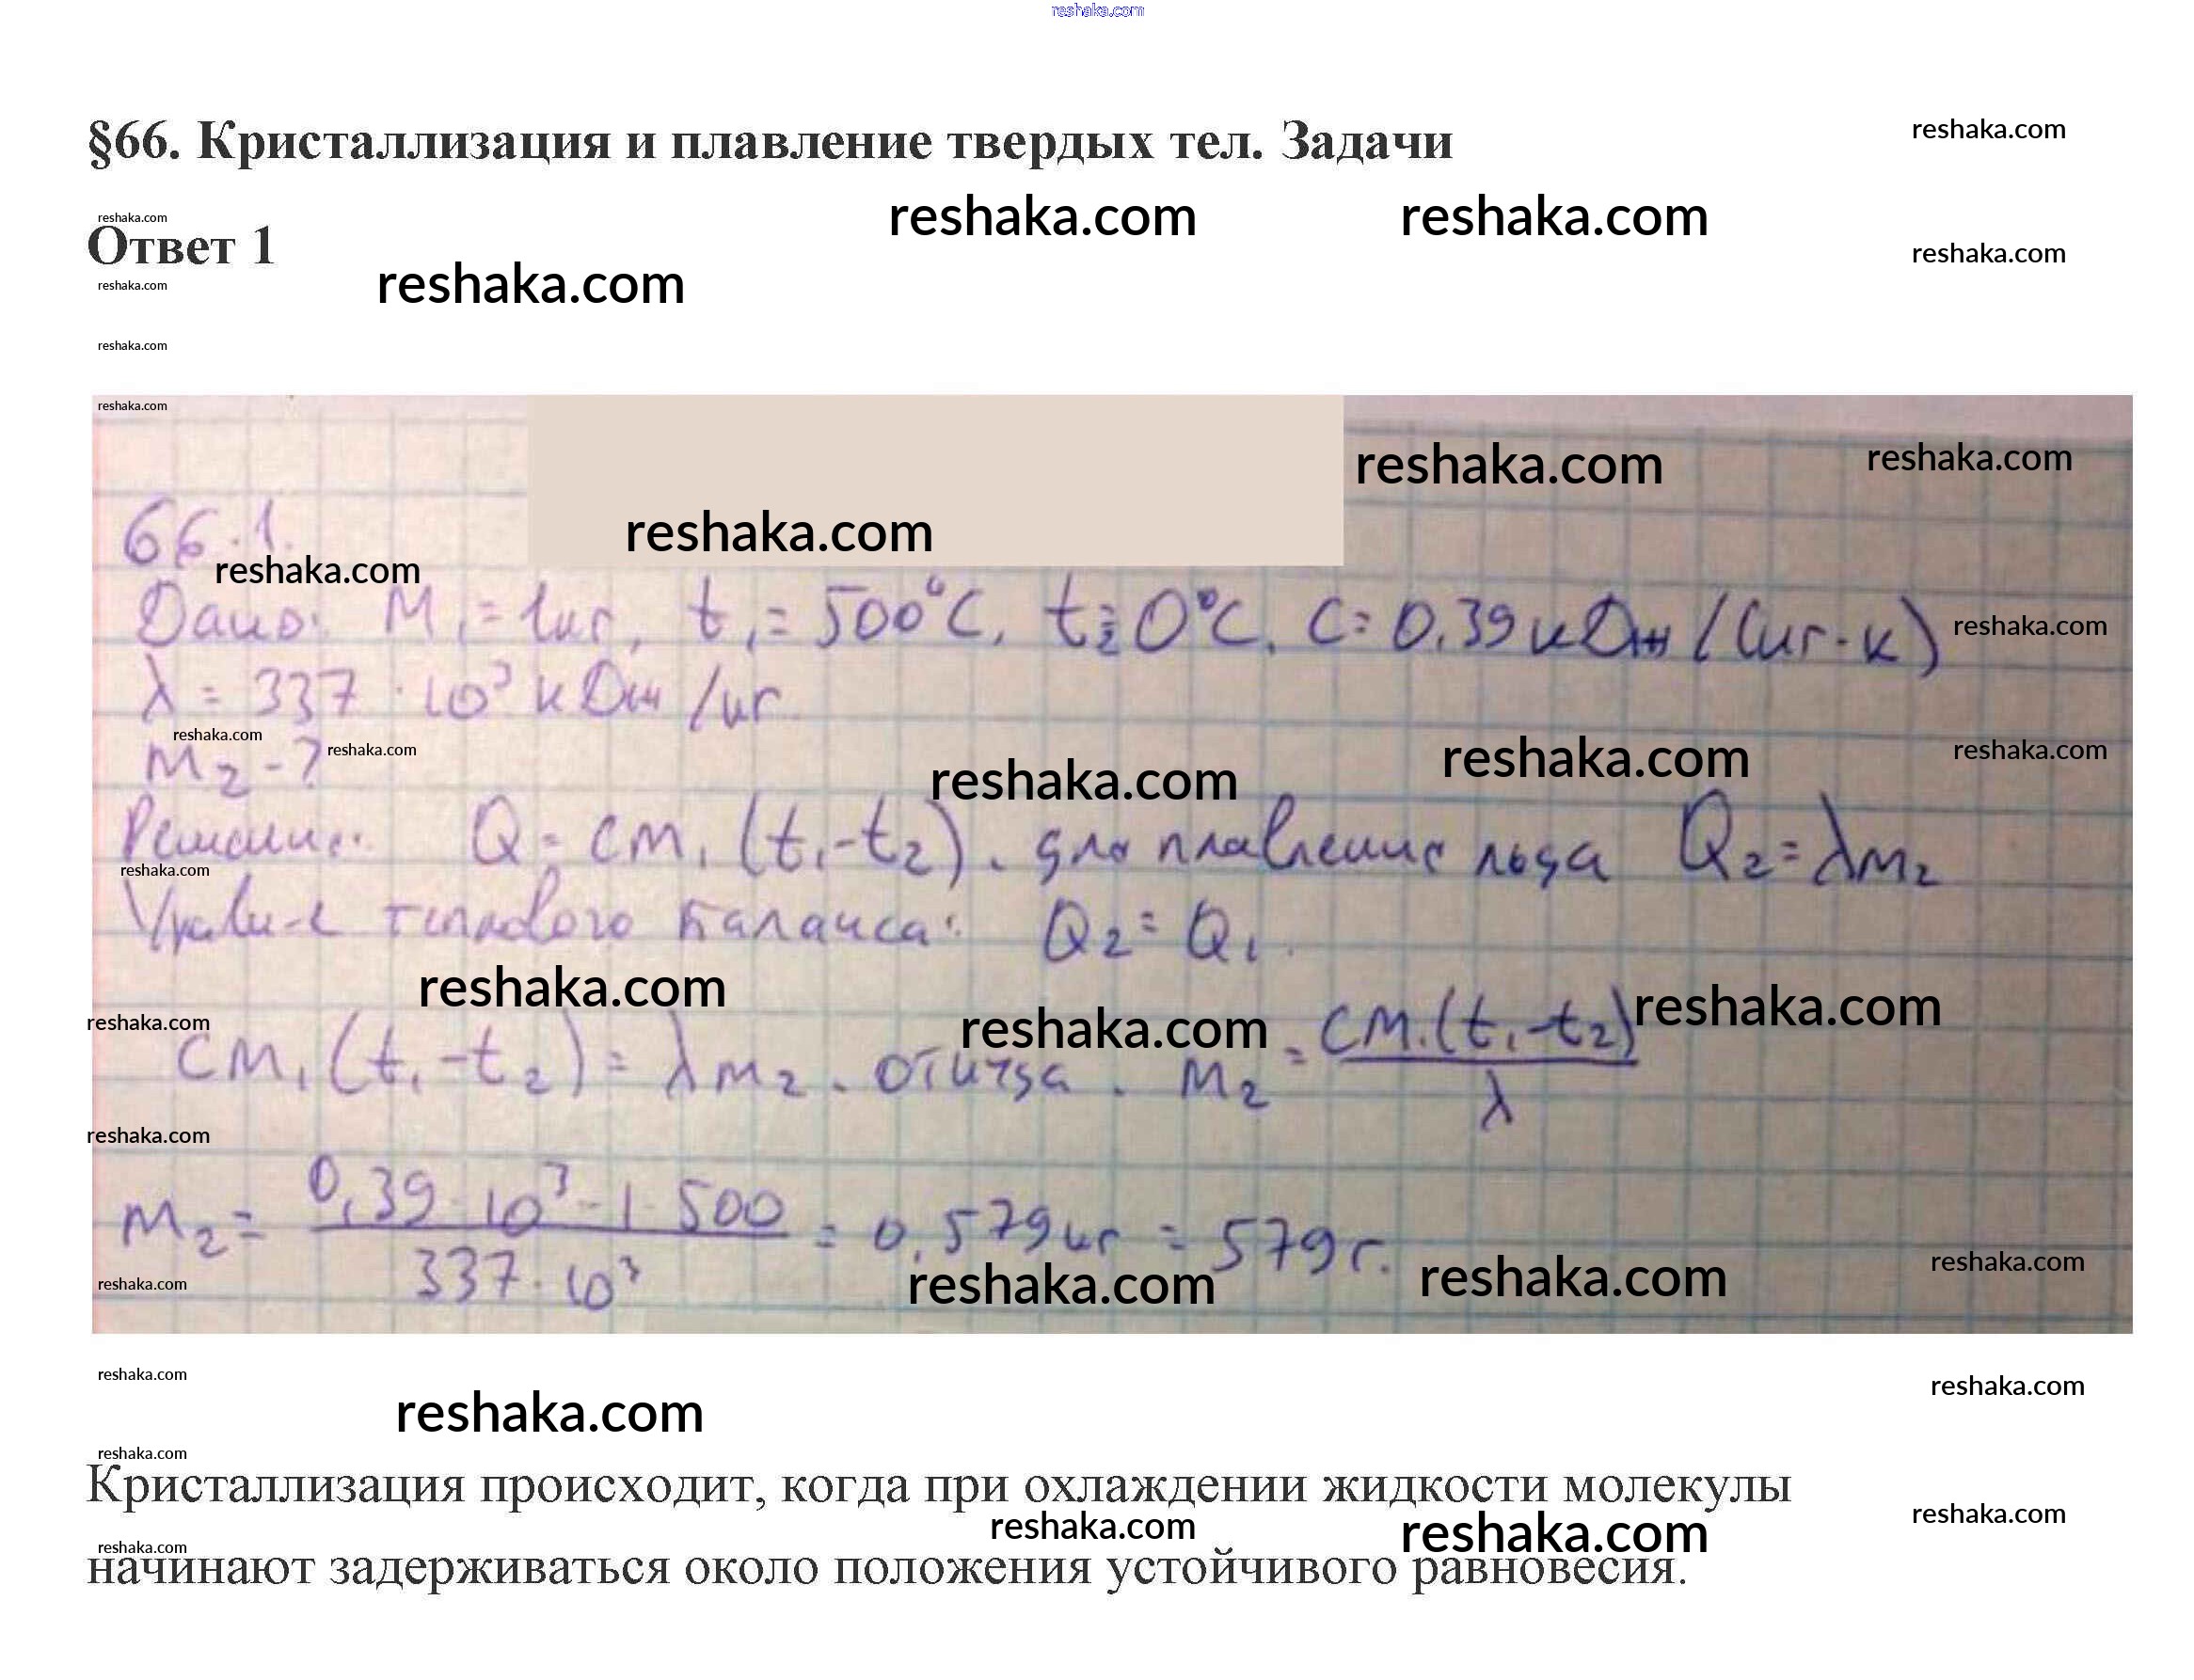 reshaka.com
§66. Кристаллизация и плавление твердых тел. Задачи
reshaka.com
reshaka.com reshaka.com
reshaka.com
Ответ 1
reshaka.com
reshaka.com
reshaka.com
reshaka.com
reshaka.com
reshaka.com reshaka.com
66.1.
reshaka.com
reshaka.com
Дано: M₁ = 1кг, t₁ = 500°C, t₂ = 0°C, C = 0,39 кДж/(кг·к)
reshaka.com
λ = 337 · 10³ кДж/кг
reshaka.com reshaka.com
reshaka.com reshaka.com reshaka.com
M₂ - ?
reshaka.com
Решение: Q = cm₁ (t₁-t₂). для плавление льда Q₂ = λm₂
reshaka.com
Уравн-е теплового баланса: Q₂ = Q₁.
reshaka.com reshaka.com reshaka.com
reshaka.com
cm₁(t₁-t₂) = λm₂. откуда. m₂ = cm₁(t₁-t₂)/λ
reshaka.com
m₂ = 0,39·10³·1·500/337·10³ = 0,579кг = 579г.
reshaka.com reshaka.com reshaka.com reshaka.com
reshaka.com reshaka.com
reshaka.com
reshaka.com
Кристаллизация происходит, когда при охлаждении жидкости молекулы
reshaka.com reshaka.com reshaka.com
reshaka.com
начинают задерживаться около положения устойчивого равновесия.